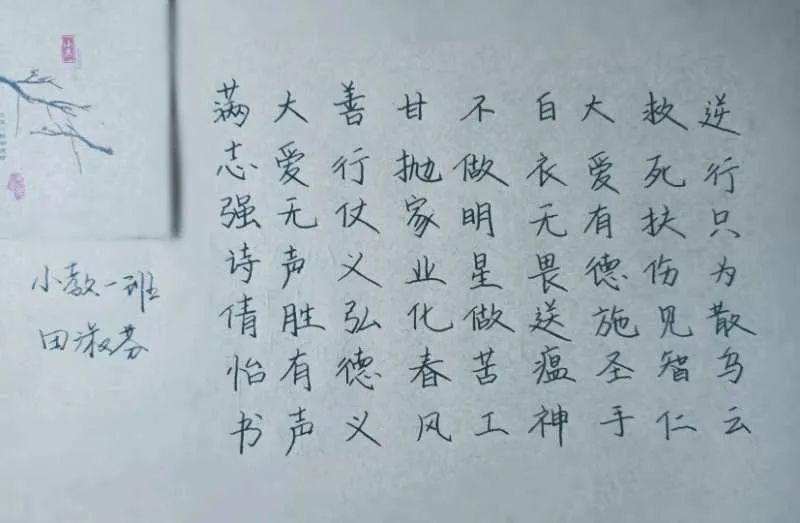 逆行只为散乌云
救死扶伤见智仁
大爱有德施圣手
白衣无畏送瘟神
不做明星做苦工
甘抛家业化春风
善行仗义弘德义
大爱无声胜有声
满志强诗倩怡书
小教一班
田淑芬